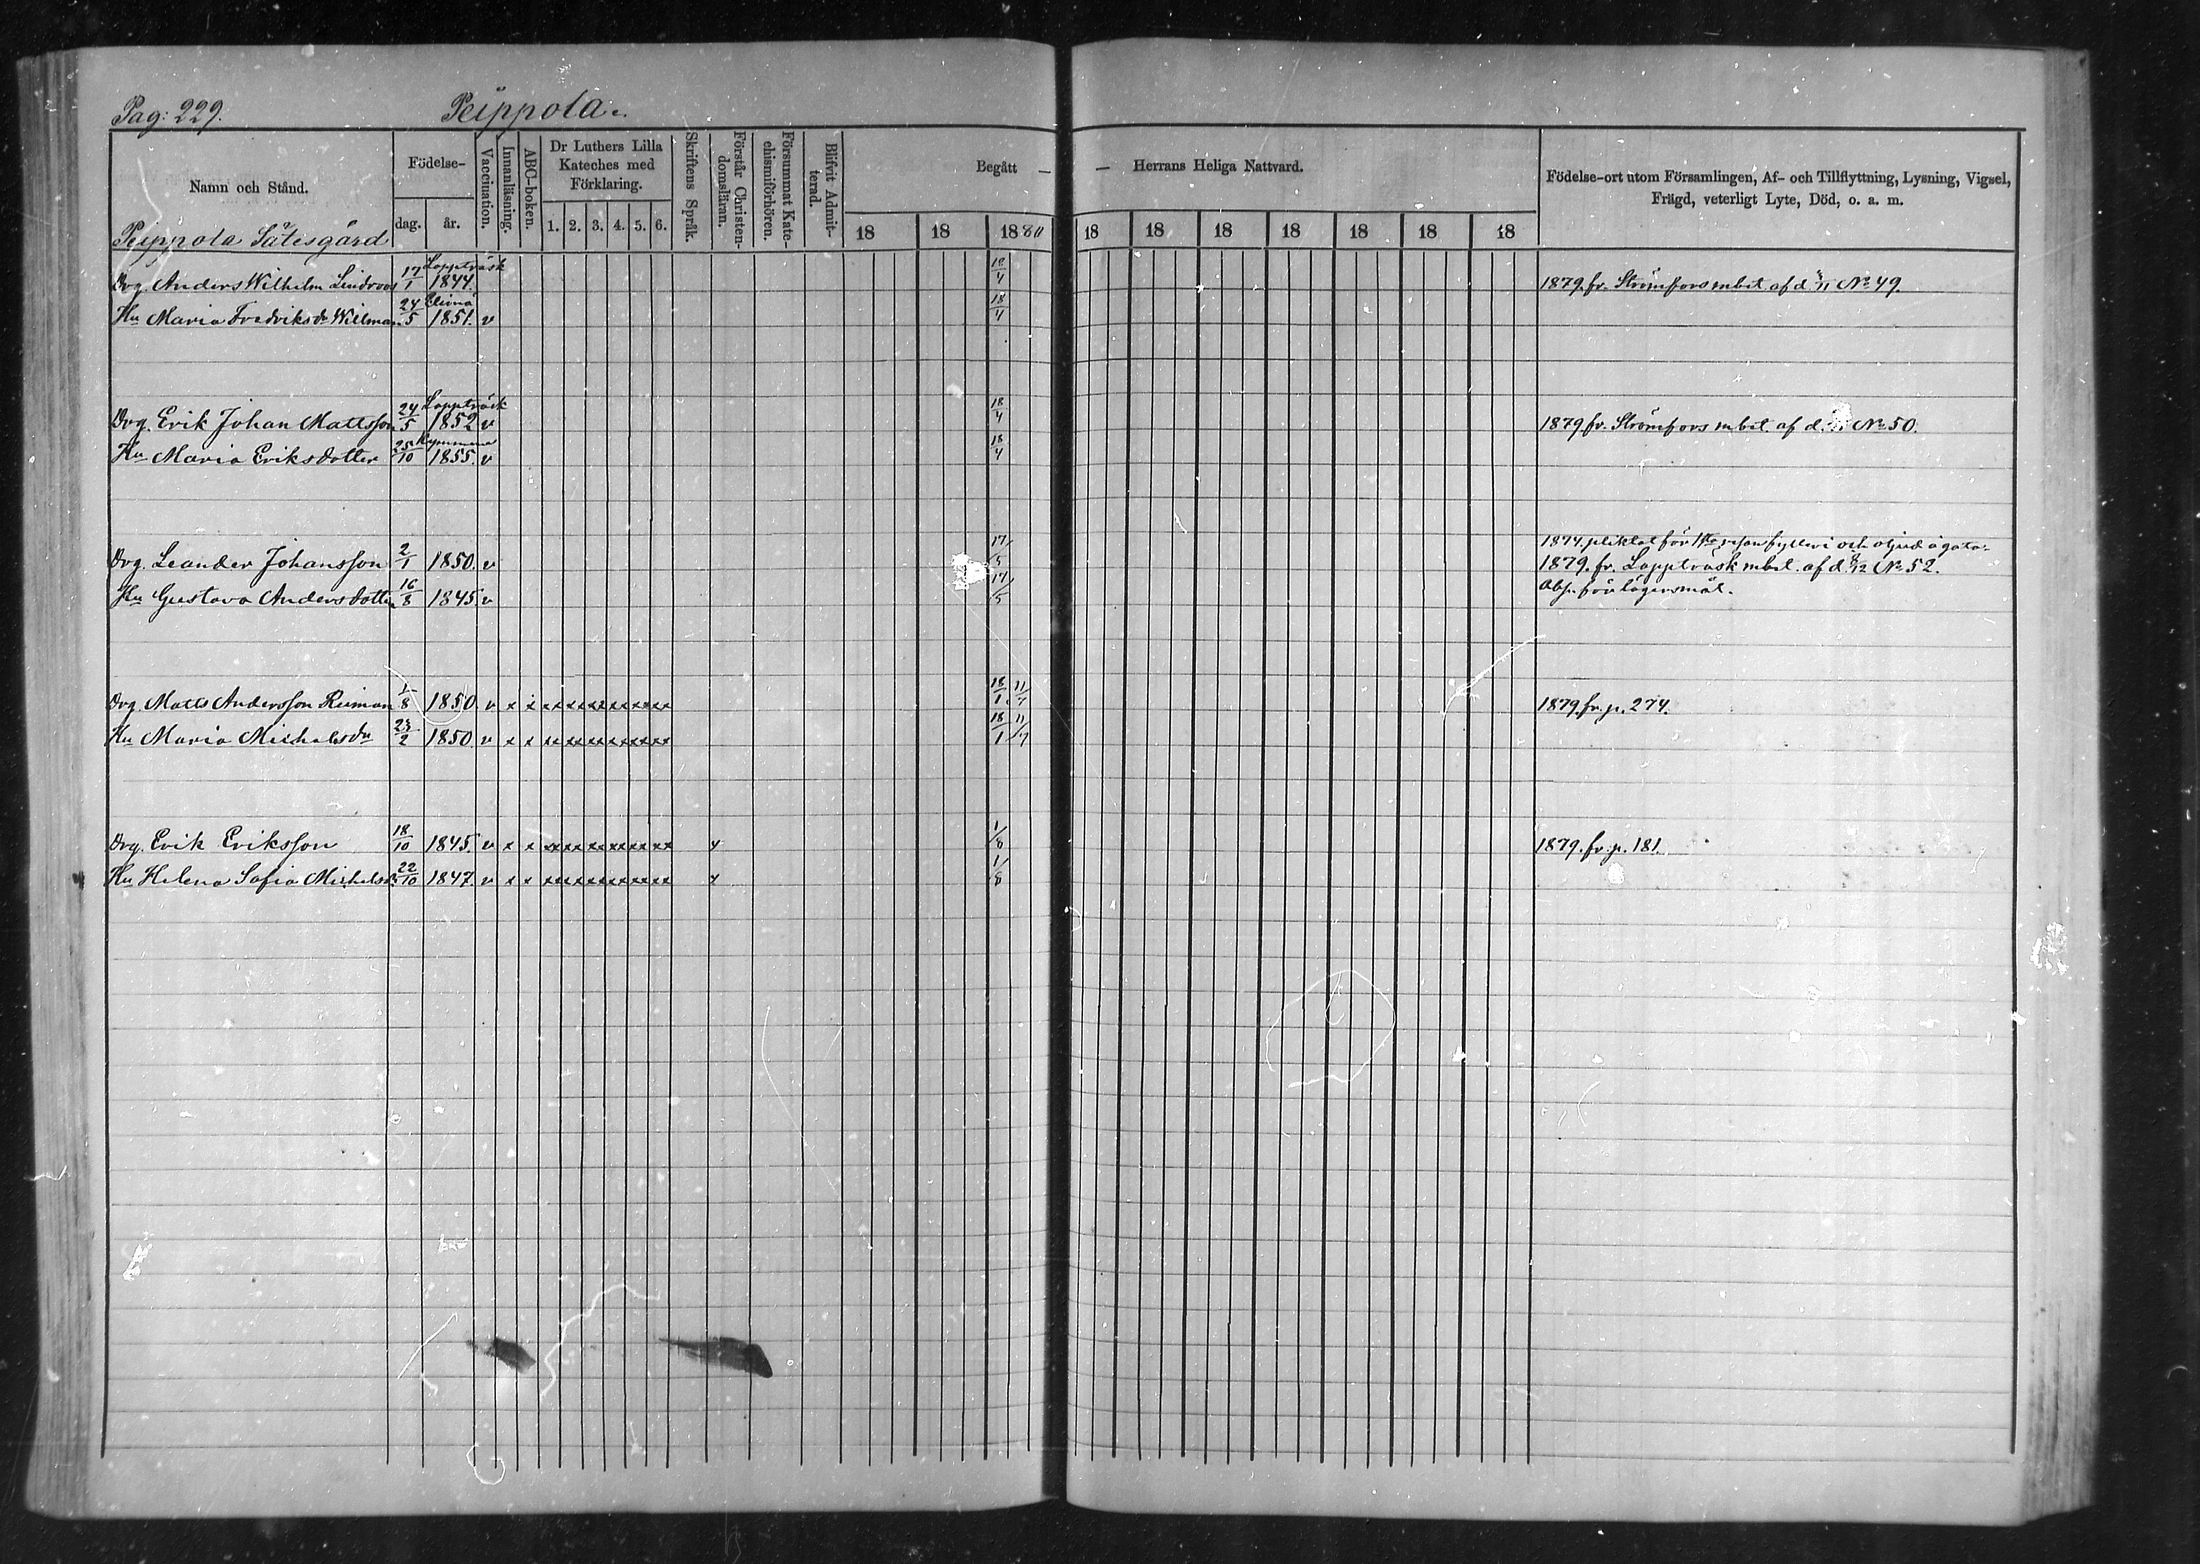 Pag: 229. Peippola.
Namn och Stånd. Födelse- dag. år. Vaccination. Innanläsning. ABC-boken. Dr Luthers Lilla Kateches med Förklaring. 1. 2. 3. 4. 5. 6. Skriftens Språk. Förstår Christendomsläran. Försummat Katechismiförhören. Blifvit Admitterad. Begått — — Herrans Heliga Nattvard. Födelse-ort utom Församlingen, Af- och Tillflyttning, Lysning, Vigsel, Frägd, veterligt Lyte, Död, o. a. m.
Peippola Sätesgård 18 18 1880 18 18 18 18 18 18 18
Drg. Anders Wilhelm Lindroos 17/1 Lappträsk 1844. 18/4 1879. fr. Strömfors m. bet. af d. No 49.
Hu Maria Fredriksdr Willman 24/5 Elimä 1851. v 18/4
Drg. Erik Johan Mattsson 24/5 Lappträsk 1852 v 18/4 1879 fr. Strömfors m. bet. af d. No 50.
Hu Maria Eriksdotter 25/10 Kymmene 1855. v 18/4
1874 pliktat för 1sta resan fylleri och oljud å gata.
Drg. Leander Johansson 2/1 1850. v 17/5 1879. fr. Lappträsk m. bet. af d. No 52.
Hu Gustava Andersdotter 16/8 1845. v 17/5 Abs. för lägersmål.
Drg. Matts Andersson Reiman 1/8 1850. v x x xx xx xx xx xx xx 18/1 11/7 1879. fr. p. 274.
Hu Maria Michelsdr 23/2 1850. v x x xx xx xx xx xx xx 18/1 11/7
Drg. Erik Eriksson 18/10 1845. v x x xx xx xx xx xx xx y 1/8 1879. fr. p. 181.
Hu Helena Sofia Michelsdr 22/10 1847. v x x xx xx xx xx xx xx y 1/8